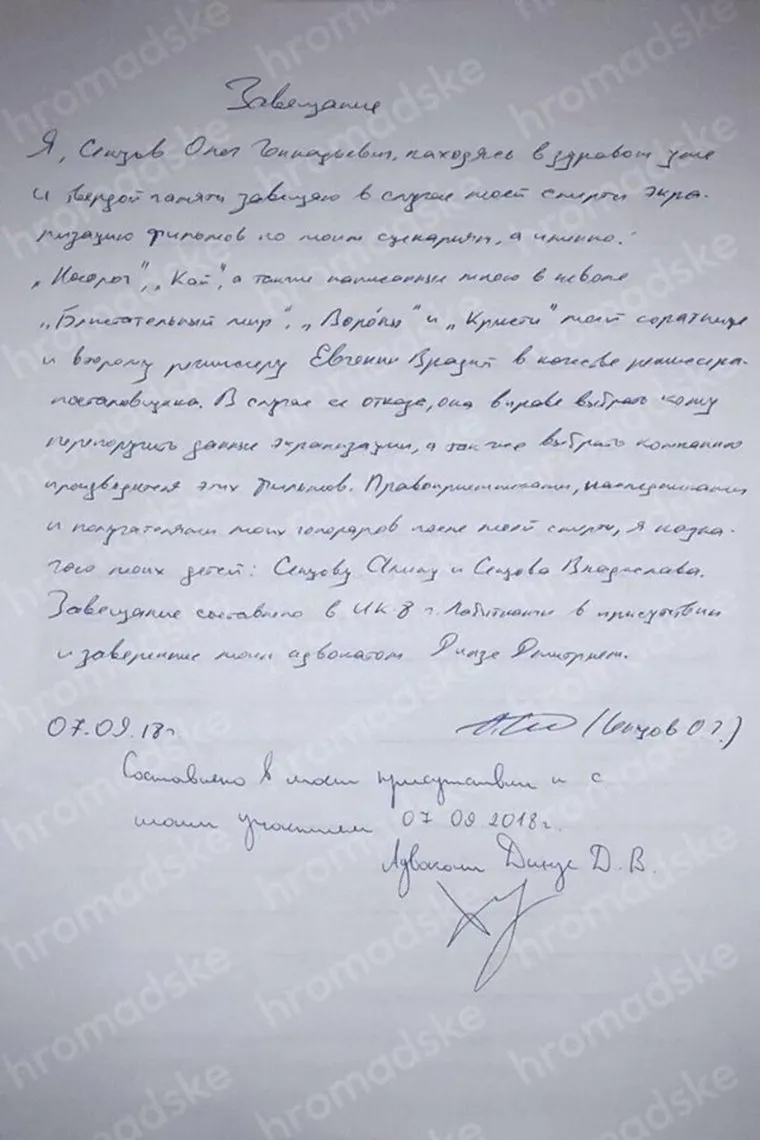 Завещание
Я, Сенцов Олег Геннадьевич, находясь в здравом уме
и твердой памяти завещаю в случае моей смерти экра-
низацию фильмов по моим сценариям, а именно:
„Носорог", „Кай", а также написанные мною в неволе
„Блистательный мир", „Воро́ны" и „Кристи" моей соратнице
и второму режиссеру Евгении Врадий в качестве режиссера-
постановщика. В случае ее отказа, она вправе выбрать кому
перепоручить данные экранизации, а так же выбрать компанию
производителя этих фильмов. Правоприемниками, наследниками
и получателями моих гонораров после моей смерти, я назна-
чаю моих детей: Сенцову Алину и Сенцова Владислава.
Завещание составлено в ИК-8 г. Лабитнанги в присутствии
и заверенные моим адвокатом Динзе Дмитрием.
07.09.18г. (Сенцов О.Г.)
Составлено в моем присутствии и с
моим участием 07 09 2018г.
Адвокат Динзе Д. В.
hromadske